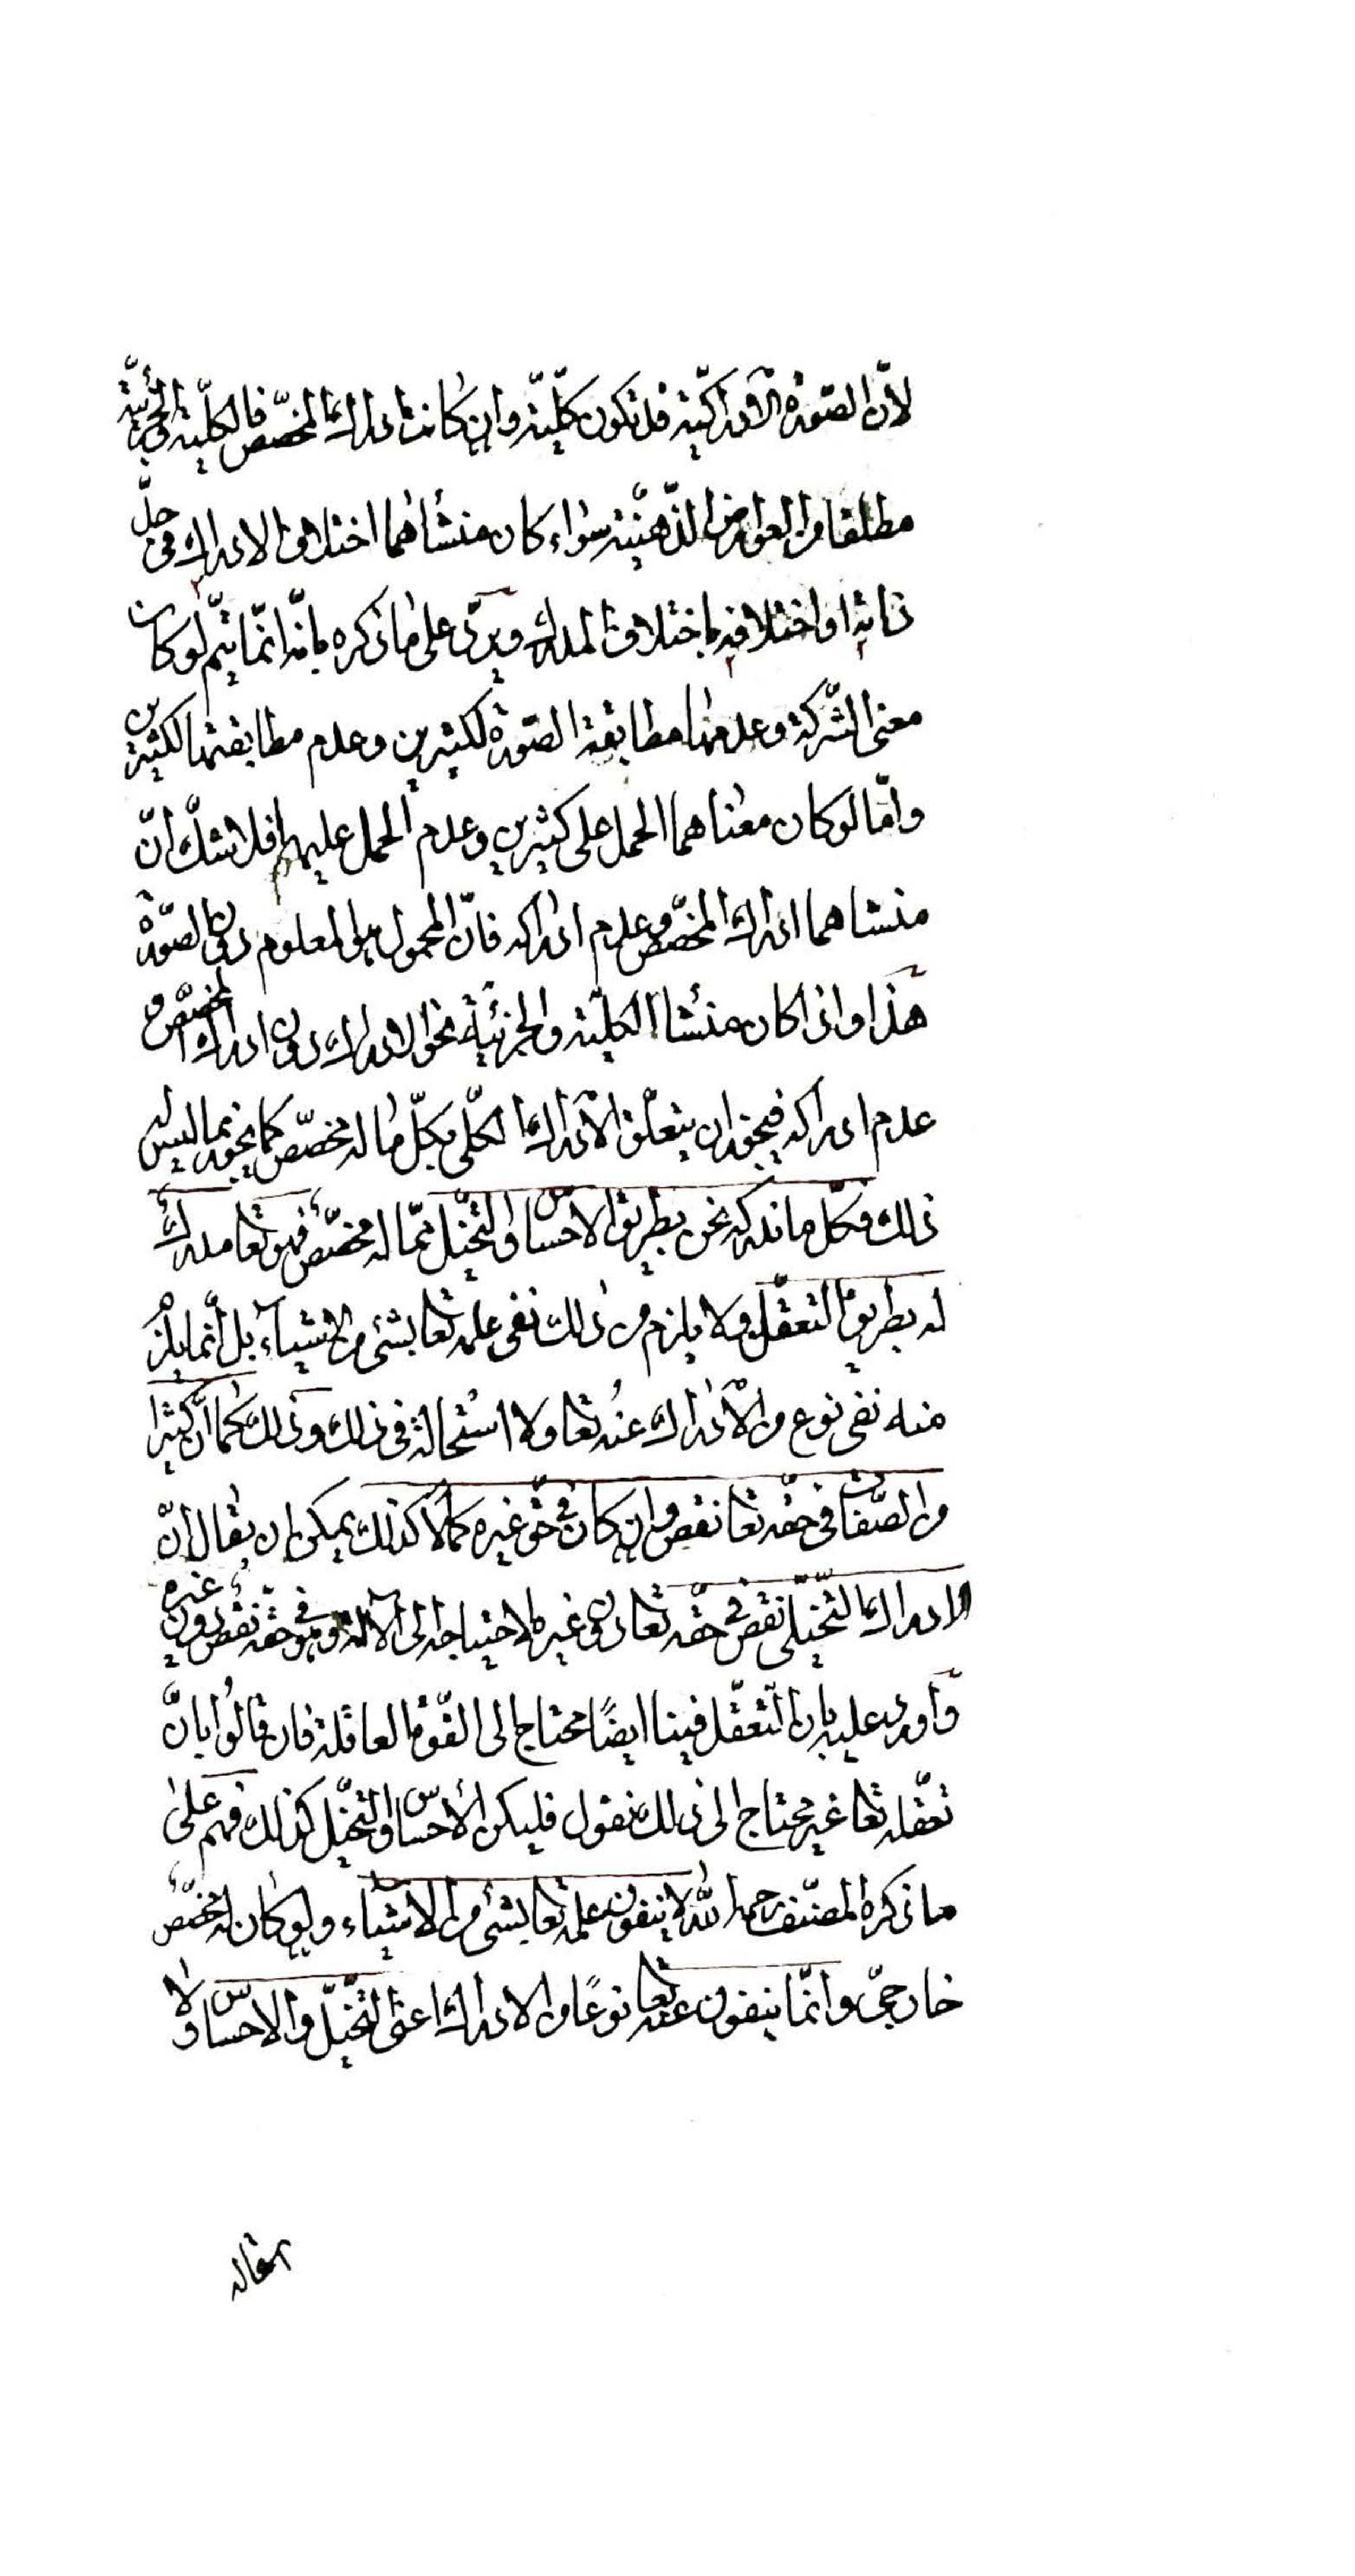 لأنّ الصّورة الادراكيّة قد تكون كلّيّة وان كانت ادراك المخصّص فالكلّية والجزئيّة
مطلقا من العوارض الذّهنيّة سواء كان منشأهما اختلاف الادراك فى حدّ
ذاته او اختلافه باختلاف المدرك ويرد على ما ذكره بانّه انّما يتمّ لو كان
معنى الشّركة وعدمها مطابقة الصّورة لكثيرين وعدم مطابقتها لكثيرين
وامّا لو كان معناهما الحمل على كثيرين وعدم الحمل عليها فلا شكّ انّ
منشاهما ادراك المخصّص وعدم ادراكه فانّ المحمول هو المعلوم دون الصّورة
هذا واذا كان منشأ الكلّية والجزئيّة نحو الادراك دون ادراك المخصّص و
عدم ادراكه فيجوز ان يتعلّق الادراك الكلّى بكلّ ما له مخصّص كما يجوز بما ليس له
ذلك فكلّ ما ندركه نحن بطريق الاحساس والتّخيّل ممّا له مخصّص فهو تعا مدرك
له بطريق التعقّل ولا يلزم من ذلك نفى علمه تعا بشئ من الاشياء بل انّما يلزم
منه نفى نوع من الادراك عنه تعا ولا استحالة فى ذلك وذلك كما انّ كثيرا
من الصّفات فى حقّه تعا نقص وان كان فى حقّ غيره كمالا كذلك يمكن ان يقال انّ
الادراك التّخيّلى نقص فى حقّه تعا دون غيره لاحتياجه الى الآلة وهو فى حقّه نقص دون غيره
وأورد عليه بان التّعقّل فينا ايضًا محتاج الى القوّة العاقلة فان قالوا بانّ
تعقّله تعا غير محتاج الى ذلك نقول فليكن الأحساس والتخيّل كذلك فهم على
ما ذكره المصنّف رحمه الله لا ينفون علمه تعا بشئ من الاشياء ولو كان له مخصّص
خارجىّ وانّما ينفون عنه تعا نوعًا من الادراك اعنى التّخيّل والاحساس ولا